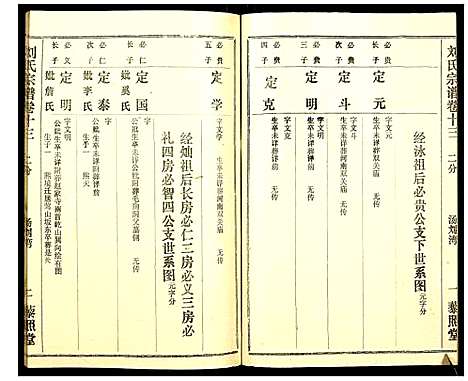 刘氏宗谱卷十三
二分
汤刘湾
一
藜照堂
经泳祖后必贵公支下世系图元字分
必贵
长子
定元
字文元
生卒未详葬双关庙
无传
必贵
次子
定斗
字文斗
生卒未详葬河南双关庙
无传
必贵
三子
定明
字文明
生卒未详葬双关庙
无传
必贵
四子
定克
字文克
无传
必贵
五子
定学
字文学
生卒未详葬河南双关庙
无传
经灿祖后长房必仁三房必义三房必
礼四房必智四公支世系图元字分
必仁
长子
定国
字
公妣生卒未详
无传
妣奚氏
必仁
次子
定泰
字
公妣生卒未详葬前
生子一
熙天
妣李氏
必义
长子
定明
字文明
生子一
妣詹氏
刘氏宗谱卷十三
二分
汤刘湾
二
藜照堂